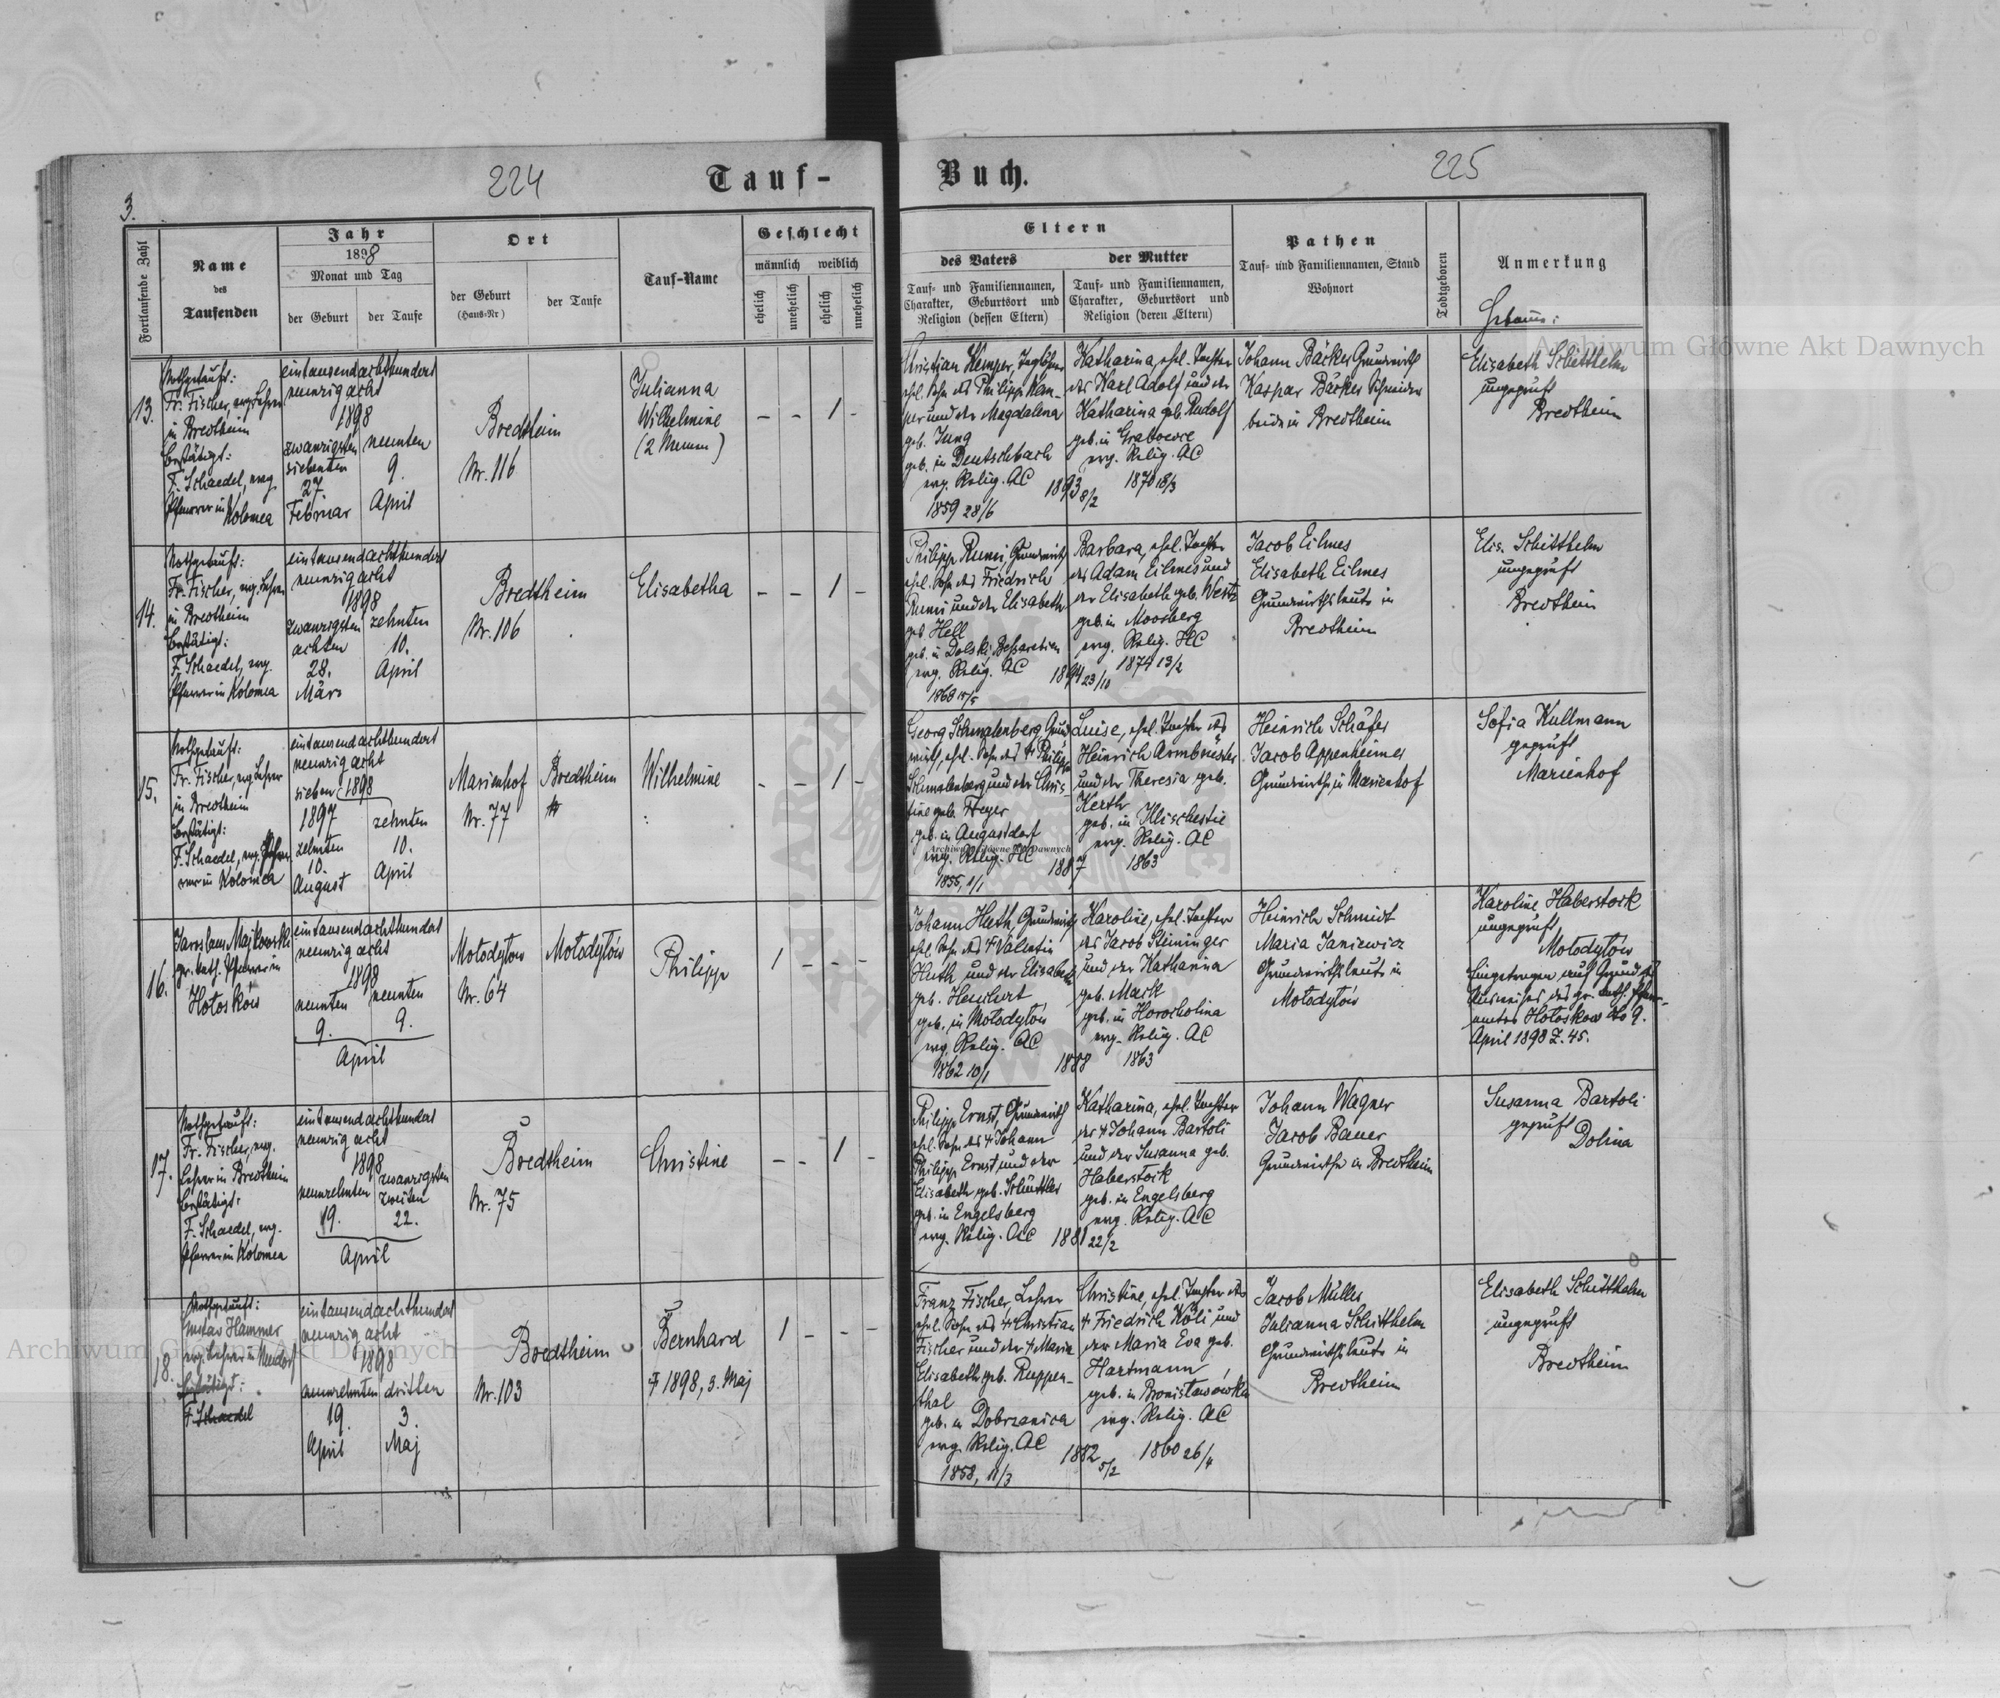 224
Tauf-
Buch.
225
3.
Fortlaufende Zahl
Name
des
Taufenden
Jahr
1898
Monat und Tag
der Geburt
der Taufe
Ort
der Geburt
(Haus-Nr)
der Taufe
Tauf-Name
Geschlecht
männlich
weiblich
ehelich
unehelich
ehelich
unehelich
Eltern
des Vaters
Tauf- und Familiennamen,
Charakter, Geburtsort und
Religion (dessen Eltern)
der Mutter
Tauf- und Familiennamen,
Charakter, Geburtsort und
Religion (deren Eltern)
Pathen
Tauf- und Familiennamen, Stand
Wohnort
Todtgeboren
Anmerkung
Hebamme:
13.
Nothgetauft:
Fr. Fischer, evg. Lehrer
in Bredtheim
bestätigt:
F. Schaedel, evg.
Pfarrer in
Kolomea
eintausendachthundert
neunzig acht
1898
zwanzigsten
siebenten
27.
Februar
neunten
9.
April
Bredtheim
Nr. 116
Julianna
Wilhelmine
(2 Namen)
– – 1 –
Christian Kemper, Taglöhner
ehel. Sohn des Philipp Kem-
per und der Magdalena
geb. Jung
geb. in Deutschbach
evg. Relig. AC
1859 28/6
1893 8/2
Katharina, ehel. Tochter
des Karl Adolf und der
Katharina geb. Rudolf
geb. in Grabowce
evg. Relig. AC
1870 18/3
Johann Bäcker Grundwirth
Kaspar Bäcker Schneider
beide in Bredtheim
Elisabeth Schitthelm
ungeprüft
Bredtheim
14.
Nothgetauft:
Fr. Fischer, evg. Lehrer
in Bredtheim
bestätigt:
F. Schaedel, evg.
Pfarrer in Kolomea
eintausendachthundert
neunzig acht
1898
zwanzigsten
achten
28.
März
zehnten
10.
April
Bredtheim
Nr. 106
Elisabetha
– – 1 –
Philipp Rumi, Grundwirth
ehel. Sohn des Friedrich
Rumi und der Elisabeth
geb. Hell
geb. in Dolski
evg. Relig. AC
1894 23/10
Barbara, ehel. Tochter
des Adam Eilmes und
der Elisabeth geb. Westz
geb. in Moosberg
evg. Relig. HC
1874 13/2
Jacob Eilmes
Elisabeth Eilmes
Grundwirthsleute in
Bredtheim
Elis. Schitthelm
ungeprüft
Bredtheim
15.
Nothgetauft:
Fr. Fischer, evg. Lehrer
in Bredtheim
bestätigt:
F. Schaedel, evg. Pfar-
rer in Kolomea
eintausendachthundert
neunzig acht
sieben 1898
1897
zehnten
10.
August
zehnten
10.
April
Marienhof
Nr. 77
Bredtheim
Wilhelmine
– – 1 –
Georg Schmalenberg, Grund-
wirth, ehel. Sohn des † Philipp
Schmalenberg und der Chris-
tine geb. Freyer
geb. in Augustdorf
evg. Relig. HC
1855, 1/1
1887
Luise, ehel. Tochter des
Heinrich Armbrüster
und der Theresia geb.
Kerth
geb. in Illischestie
evg. Relig. AC
1863
Heinrich Schäfer
Jacob Appenheimer
Grundwirthe in Marienhof
Sofia Kullmann
geprüft
Marienhof
16.
Jaroslaus Majkowski
gr. kath. Pfarrer in
Hołosków
eintausendachthundert
neunzig acht
1898
neunten
9.
neunten
9.
April
Mołodytów
Nr. 64
Mołodytów
Philipp
1 – – –
Johann Huth, Grundwirth
ehel. Sohn des † Valentin
Huth und der Elisabeth
geb. Heuchert
geb. in Mołodytów
evg. Relig. AC
1862 10/1
1888
Karoline, ehel. Tochter
des Jacob Steininger
und der Katharina
geb. Mark
geb. in Horocholina
evg. Relig. AC
1863
Heinrich Schmidt
Maria Janiewicz
Grundwirthsleute in
Mołodytów
Karoline Haberstock
ungeprüft
Mołodytów
Eingetragen auf Grund des
Ausweises des gr. kath. Pfarr-
amtes Hołosków dto 9.
April 1898 Z. 45.
17.
Nothgetauft:
Fr. Fischer, evg.
Lehrer in Bredtheim
bestätigt:
F. Schaedel, evg.
Pfarrer in Kolomea
eintausendachthundert
neunzig acht
1898
neunzehnten
19.
zwanzigsten
zweiten
22.
April
Bredtheim
Nr. 75
Christine
– – 1 –
Philipp Ernst, Grundwirth
ehel. Sohn des † Johann
Philipp Ernst und der
Elisabeth geb. Schüttler
geb. in Engelsberg
evg. Relig. AC
1881 22/2
Katharina, ehel. Tochter
des † Johann Bartoli
und der Susanna geb.
Haberstock
geb. in Engelsberg
evg. Relig. AC
Johann Wagner
Jacob Bauer
Grundwirthe in Bredtheim
Susanna Bartoli
geprüft
Dolina
18.
Nothgetauft:
Gustav Hammer
evg. Lehrer in Neudorf
bestätigt:
F. Schaedel
eintausendachthundert
neunzig acht
1898
neunzehnten
19.
April
dritten
3.
Maj
Bredtheim
Nr. 103
Bernhard
† 1898, 3. Maj
1 – – –
Franz Fischer, Lehrer
ehel. Sohn des † Christian
Fischer und der † Maria
Elisabeth geb. Ruppen-
thal
geb. in Dobrzanica
evg. Relig. AC
1858, 11/3
1882 5/2
Christine, ehel. Tochter des
† Friedrich Köli und
der Maria Eva geb.
Hartmann
geb. in Bronisławówka
evg. Relig. AC
1860 26/4
Jacob Müller
Julianna Schitthelm
Grundwirthsleute in
Bredtheim
Elisabeth Schitthelm
ungeprüft
Bredtheim
Archiwum Główne Akt Dawnych
Archiwum Główne Akt Dawnych
Archiwum Główne Akt Dawnych